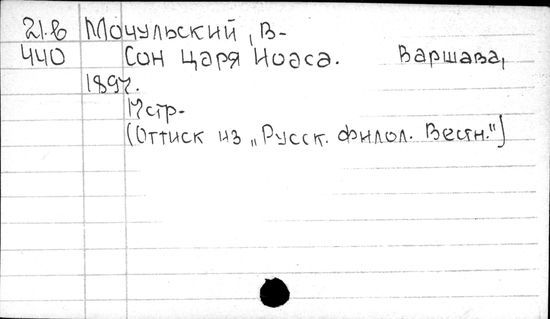 21.в Мочульский, В-
440 Сон царя Иоаса. Варшава,
1897.
17 стр-
(Оттиск из „Русск. филол. Вестн.")